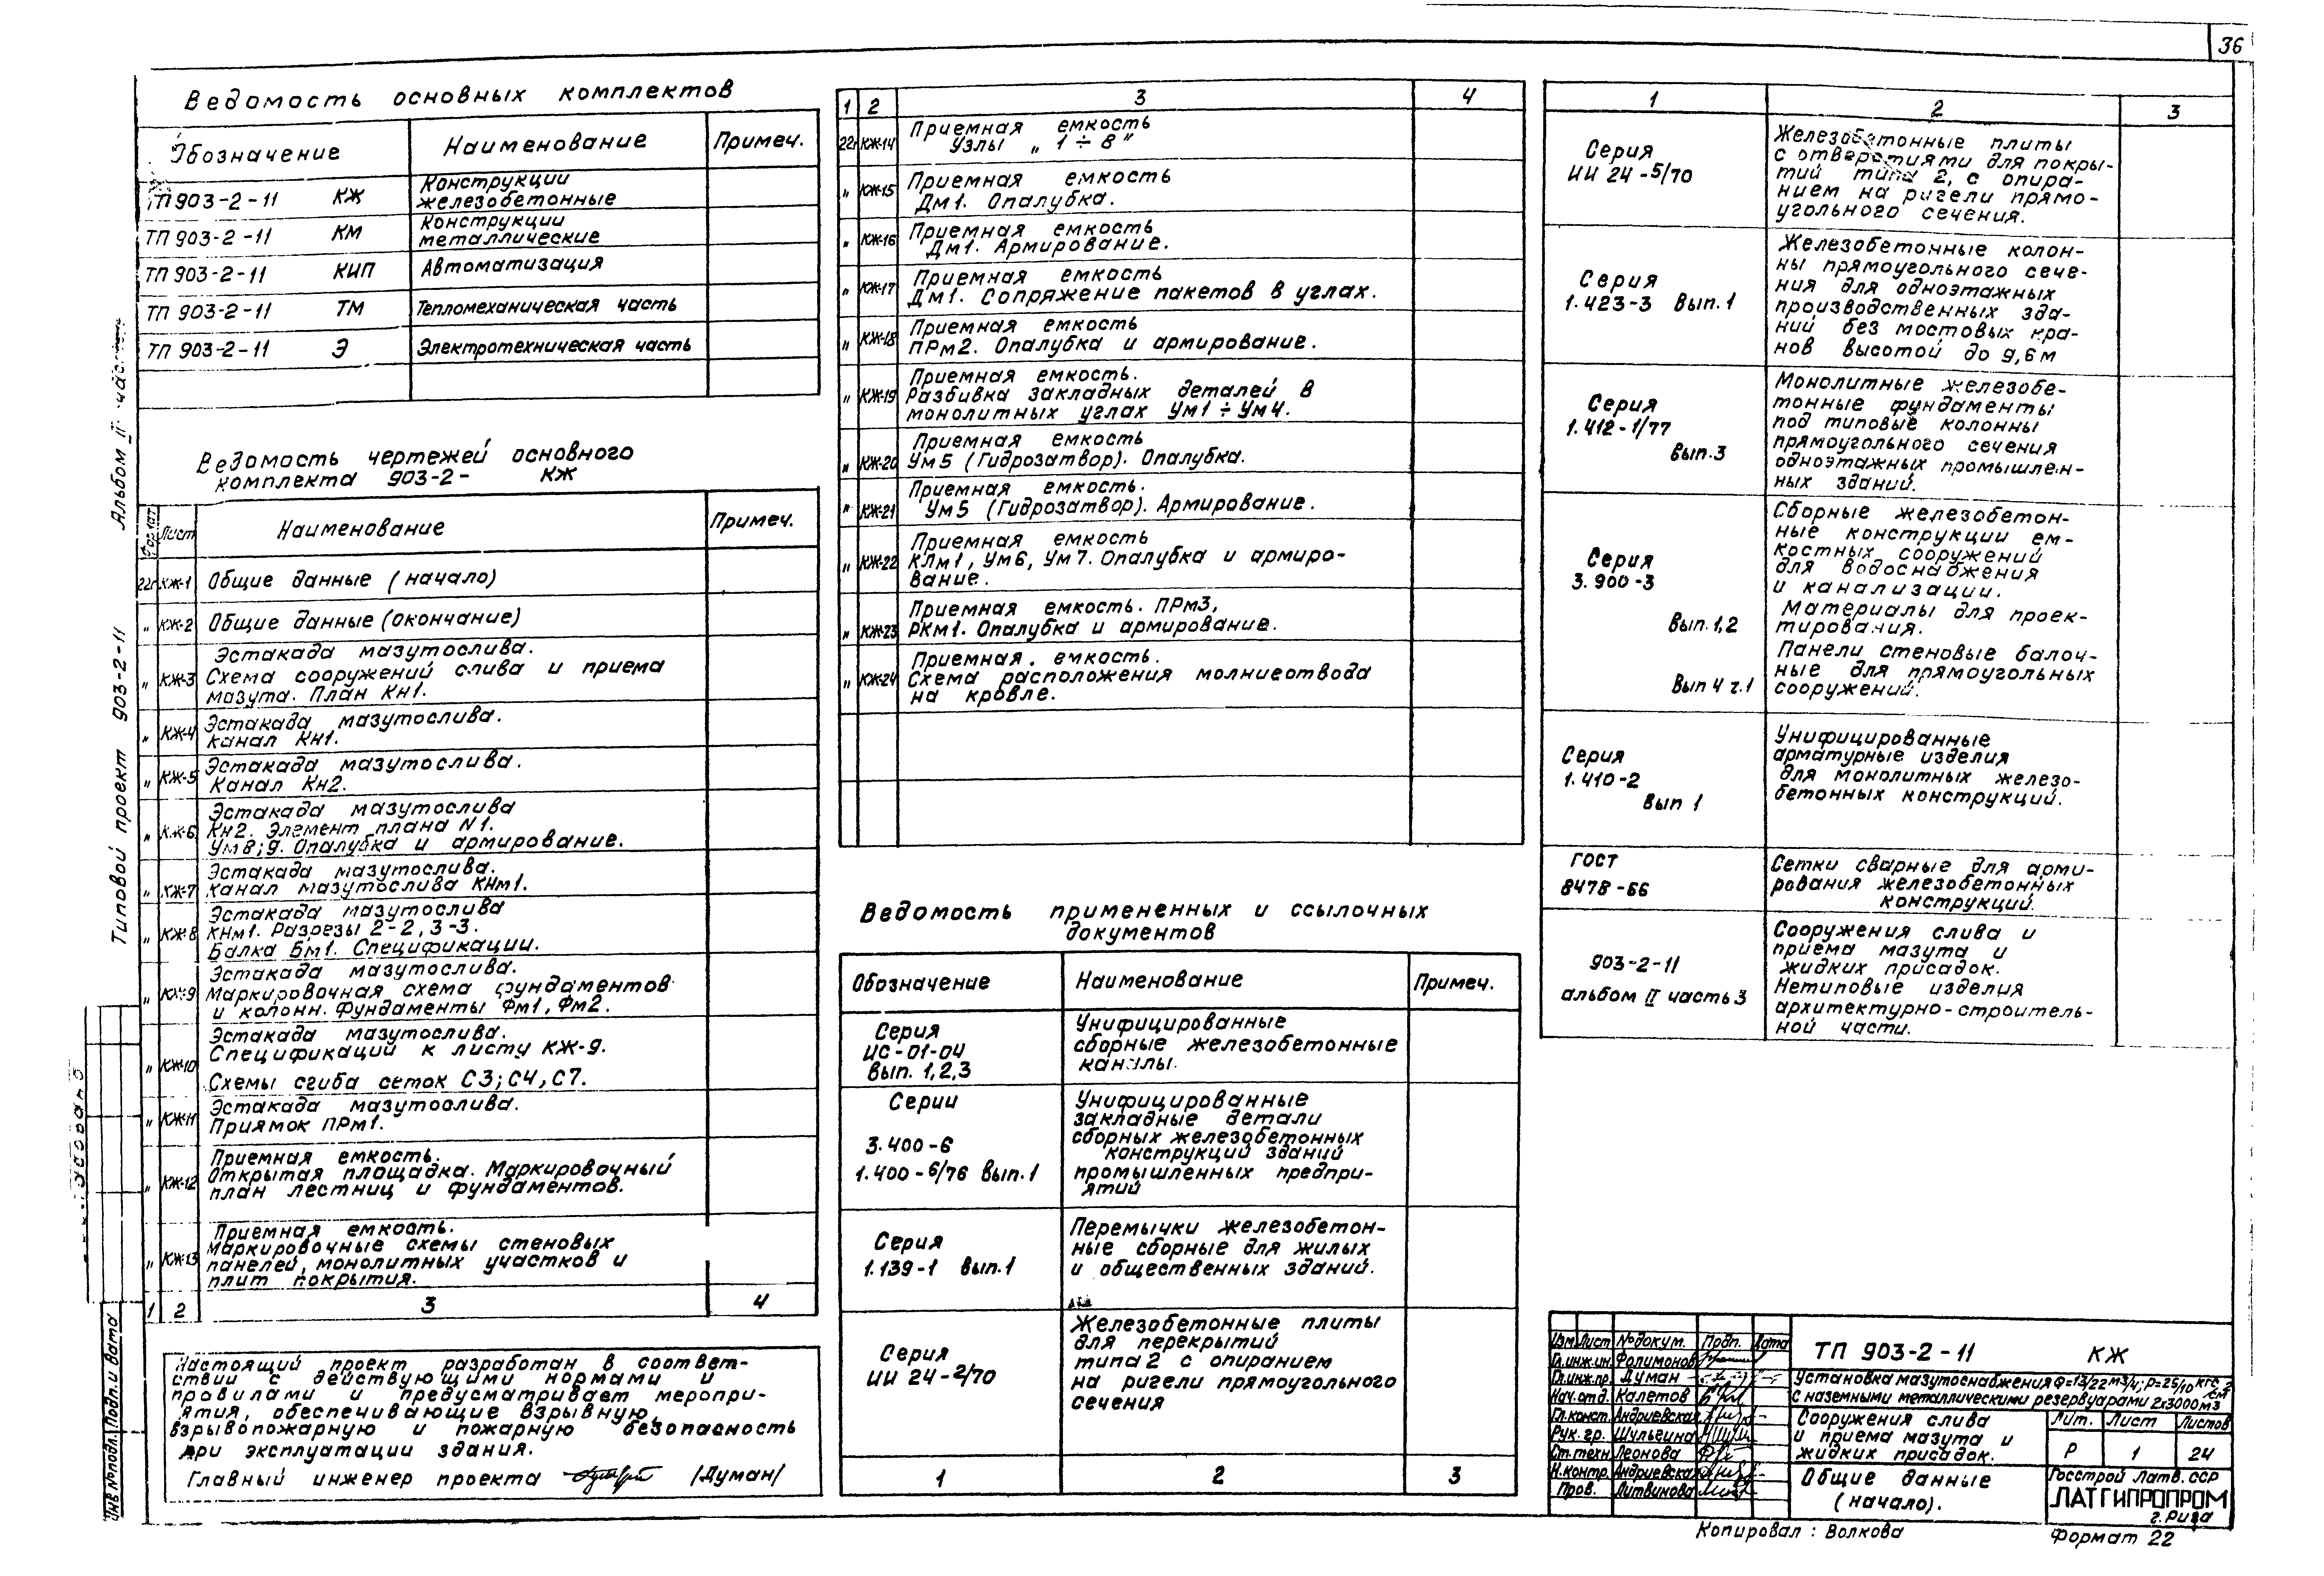 36
Ведомость основных комплектов
Обозначение Наименование Примеч.
ТП 903-2-11 КЖ Конструкции
железобетонные
ТП 903-2-11 КМ Конструкции
металлические
ТП 903-2-11 КИП Автоматизация
ТП 903-2-11 ТМ Тепломеханическая часть
ТП 903-2-11 Э Электротехническая часть
Ведомость чертежей основного
комплекта 903-2- КЖ
Формат Лист Наименование Примеч.
22г КЖ-1 Общие данные (начало)
" КЖ-2 Общие данные (окончание)
Эстакада мазутослива.
" КЖ-3 Схема сооружений слива и приема
мазута. План Кн1.
Эстакада мазутослива.
" КЖ-4 канал Кн1.
Эстакада мазутослива.
" КЖ-5 Канал Кн2.
Эстакада мазутослива
" КЖ-6 Кн2. Элемент плана N1.
Ум8;9. Опалубка и армирование.
Эстакада мазутослива.
" КЖ-7 Канал мазутослива КНм1.
Эстакада мазутослива
" КЖ-8 КНм1. Разрезы 2-2, 3-3.
Балка Бм1. Спецификации.
Эстакада мазутослива.
" КЖ-9 Маркировочная схема фундаментов
и колонн. Фундаменты Фм1, Фм2.
Эстакада мазутослива.
Спецификации к листу КЖ-9.
" КЖ-10 Схемы сгиба сеток С3; С4, С7.
Эстакада мазутослива.
" КЖ-11 Приямок ПРм1.
Приемная емкость.
" КЖ-12 Открытая площадка. Маркировочный
план лестниц и фундаментов.
Приемная емкость.
" КЖ-13 Маркировочные схемы стеновых
панелей, монолитных участков и
плит покрытия.
1 2 3 4
Настоящий проект разработан в соответ-
ствии с действующими нормами и
правилами и предусматривает меропри-
ятия, обеспечивающие взрывную,
взрывопожарную и пожарную безопасность
при эксплуатации здания.
Главный инженер проекта /Думан/
1 2 3 4
22г КЖ-14 Приемная емкость
Узлы „ 1 ÷ 8 "
" КЖ-15 Приемная емкость
Дм1. Опалубка.
" КЖ-16 Приемная емкость
Дм1. Армирование.
" КЖ-17 Приемная емкость
Дм1. Сопряжение пакетов в углах.
" КЖ-18 Приемная емкость
ПРм2. Опалубка и армирование.
Приемная емкость.
" КЖ-19 Разбивка закладных деталей в
монолитных углах Ум1 ÷ Ум4.
Приемная емкость
" КЖ-20 Ум5 (Гидрозатвор). Опалубка.
Приемная емкость.
" КЖ-21 Ум5 (Гидрозатвор). Армирование.
Приемная емкость
" КЖ-22 КЛм1, Ум6, Ум7. Опалубка и армиро-
вание.
Приемная емкость. ПРм3,
" КЖ-23 РКм1. Опалубка и армирование.
Приемная. емкость.
" КЖ-24 Схема расположения молниеотвода
на кровле.
Ведомость примененных и ссылочных
документов
Обозначение Наименование Примеч.
Серия Унифицированные
ИС-01-04 сборные железобетонные
Вып. 1,2,3 каналы.
Серии Унифицированные
закладные детали
3.400-6 сборных железобетонных
конструкций зданий
1.400-6/76 Вып.1 промышленных предпри-
ятий
Перемычки железобетон-
Серия ные сборные для жилых
1.139-1 Вып.1 и общественных зданий.
Железобетонные плиты
для перекрытий
Серия типа 2 с опиранием
ИИ 24-2/70 на ригели прямоугольного
сечения
1 2 3
1 2 3
Железобетонные плиты
Серия с отверстиями для покры-
ИИ 24-5/70 тий типа 2, с опира-
нием на ригели прямо-
угольного сечения.
Железобетонные колон-
ны прямоугольного сече-
Серия ния для одноэтажных
1.423-3 Вып.1 производственных зда-
ний без мостовых кра-
нов высотой до 9,6м
Монолитные железобе-
Серия тонные фундаменты
1.412-1/77 под типовые колонны
Вып.3 прямоугольного сечения
одноэтажных промышлен-
ных зданий.
Сборные железобетон-
ные конструкции ем-
Серия костных сооружений
3.900-3 для водоснабжения
и канализации.
Материалы для проек-
Вып.1,2 тирования.
Панели стеновые балоч-
ные для прямоугольных
Вып 4 ч.1 сооружений.
Унифицированные
Серия арматурные изделия
1.410-2 для монолитных железо-
Вып 1 бетонных конструкций.
ГОСТ Сетки сварные для арми-
8478-66 рования железобетонных
конструкций.
Сооружения слива и
приема мазута и
903-2-11 жидких присадок.
альбом II часть 3 Нетиповые изделия
архитектурно-строитель-
ной части.
Изм. Лист №докум. Подп. Дата
Гл.инж.ин. Фолимонов
Гл.инж.пр. Думан
Нач.отд. Калетов
Гл.конст. Андриевская
Рук. гр. Шульгина
Ст.техн. Леонова
Н.контр. Андриевская
Пров. Литвинова
ТП 903-2-11 КЖ
Установка мазутоснабжения Q=13/22 м3/ч; P=25/10 кгс/см2
с наземными металлическими резервуарами 2х3000м3
Сооружения слива
и приема мазута и
жидких присадок.
Лит. Лист Листов
Р 1 24
Общие данные
(начало).
Госстрой Латв. ССР
ЛАТГИПРОПРОМ
г. Рига
Копировал: Волкова
Формат 22
Типовой проект 903-2-11 Альбом II
Инв №подл. Подп. и дата